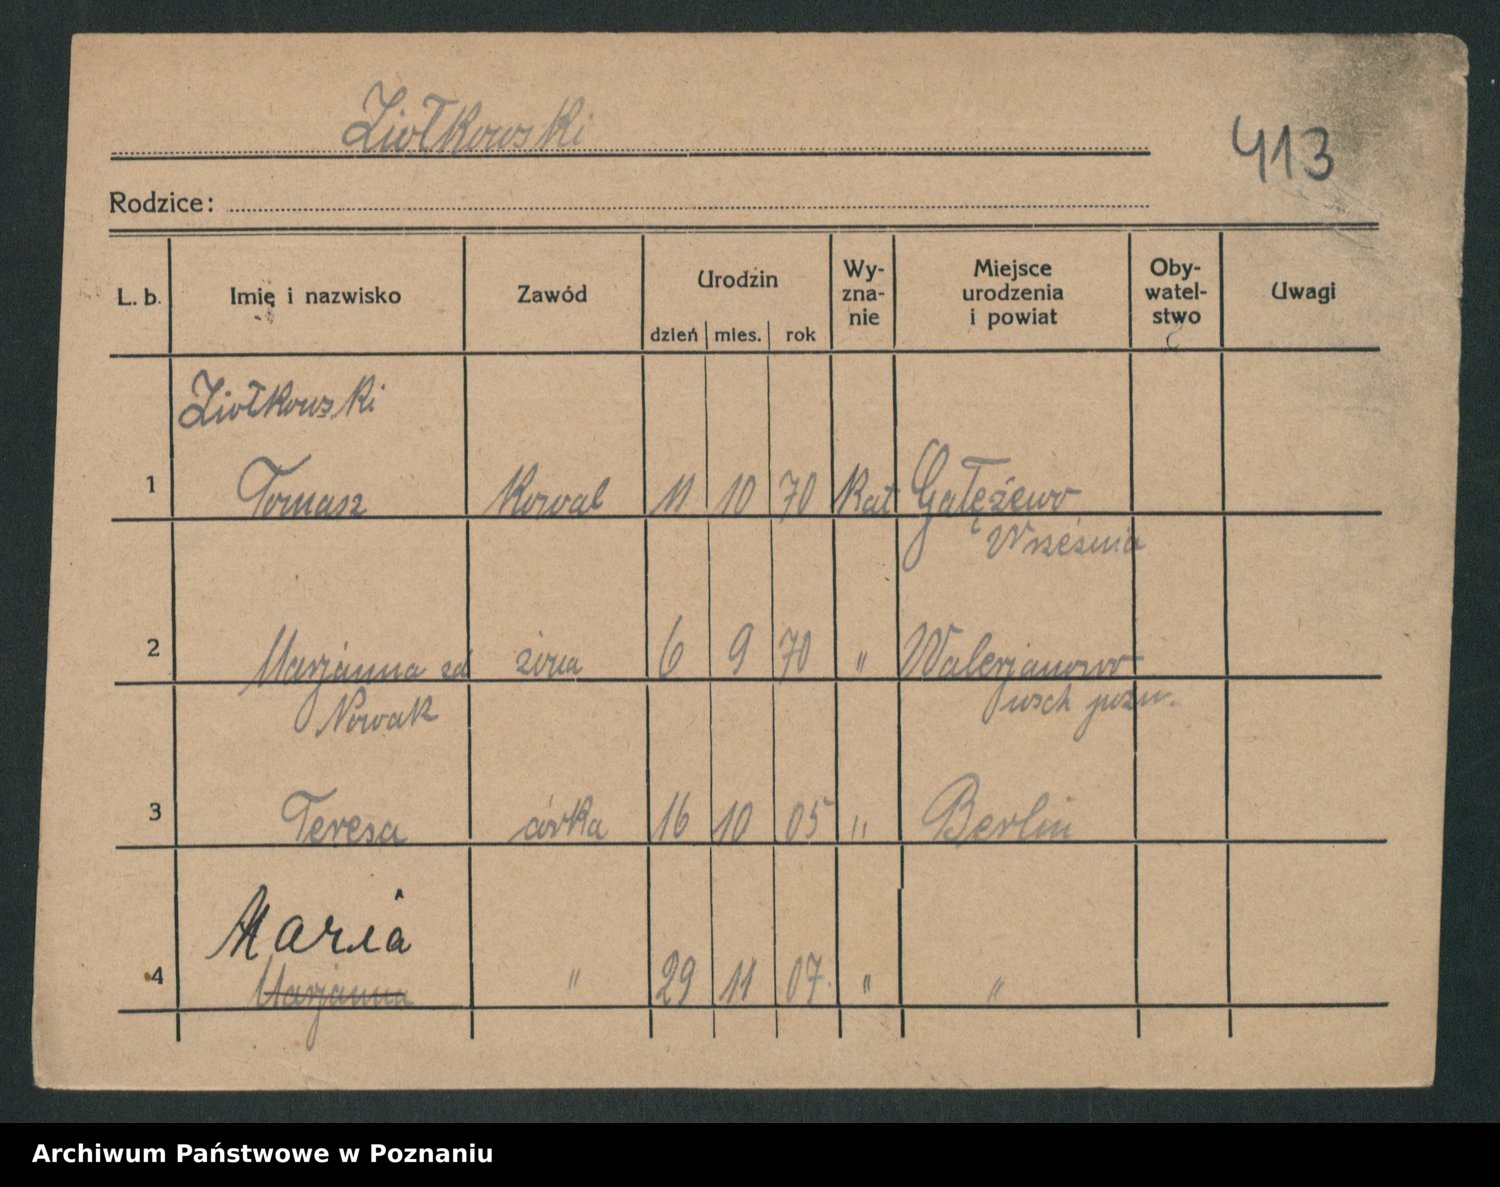 Ziołkowski
413
Rodzice:
L. b. Imię i nazwisko Zawód Urodzin dzień mies. rok Wy-zna-nie Miejsce urodzenia i powiat Oby-watel-stwo Uwagi
Ziołkowski
1 Tomasz Kowal 11 10 70 Kat Gałężewo
Września
2 Marjanna zd żona 6 9 70 " Walerjanowo
Nowak
3 Teresa córka 16 10 05 " Berlin
Maria
4 Marjanna " 29 11 07. " "
Archiwum Państwowe w Poznaniu